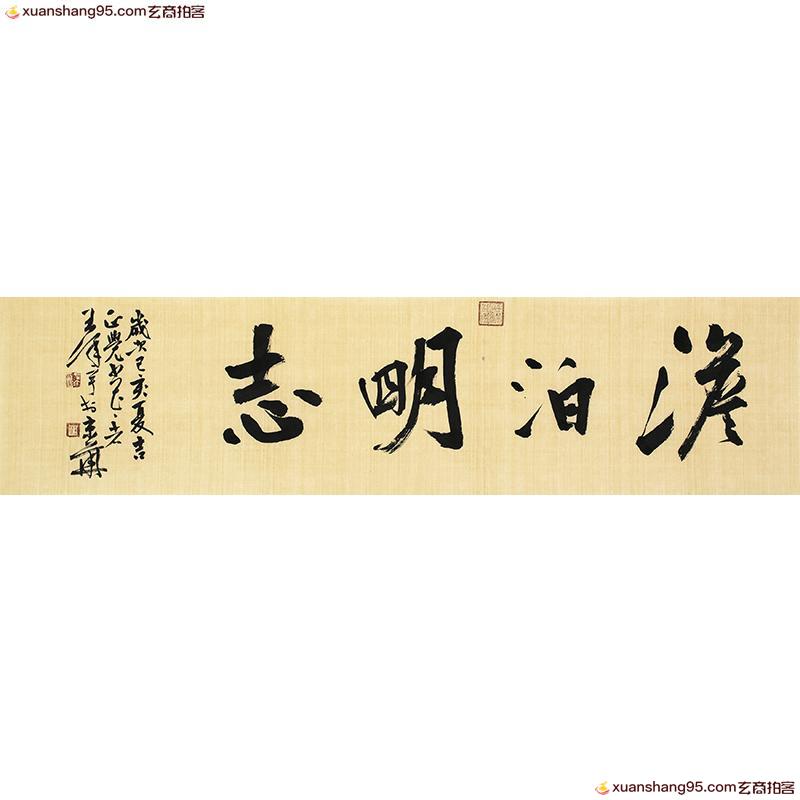 xuanshang95.com玄商拍客
澹泊明志
歲次己亥夏吉
正覺書
xuanshang95.com玄商拍客